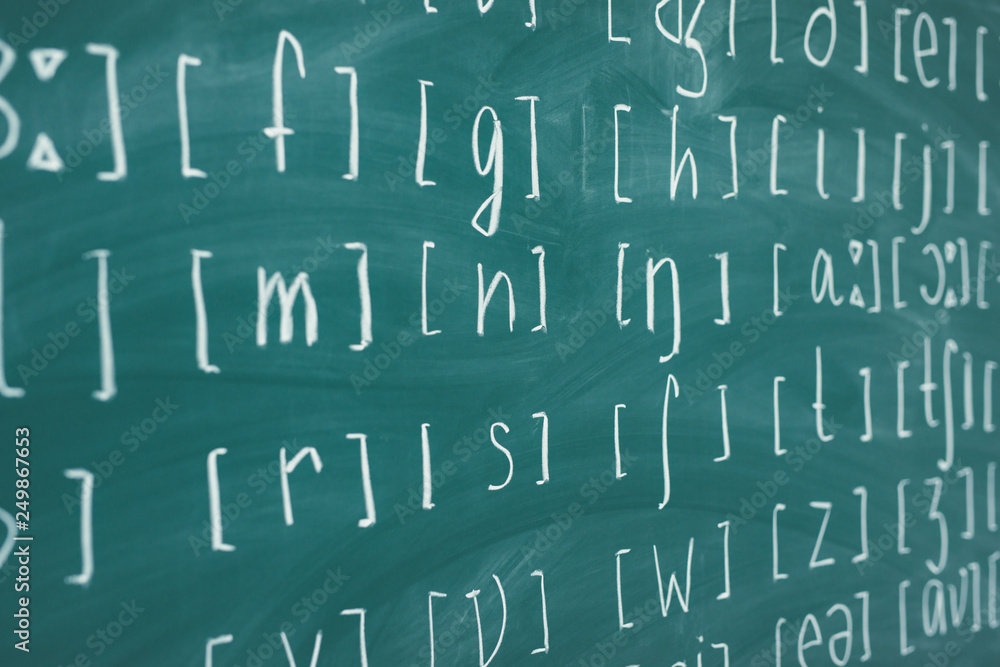 [dʒ] [ə] [e]
ː] [f] [g] [h] [i] [j]
] [m] [n] [ŋ] [ɑː] [ɔː]
] [r] [s] [ʃ] [t] [tʃ]
[w] [z] [ʒ]
[eə]
Adobe Stock | #249867653